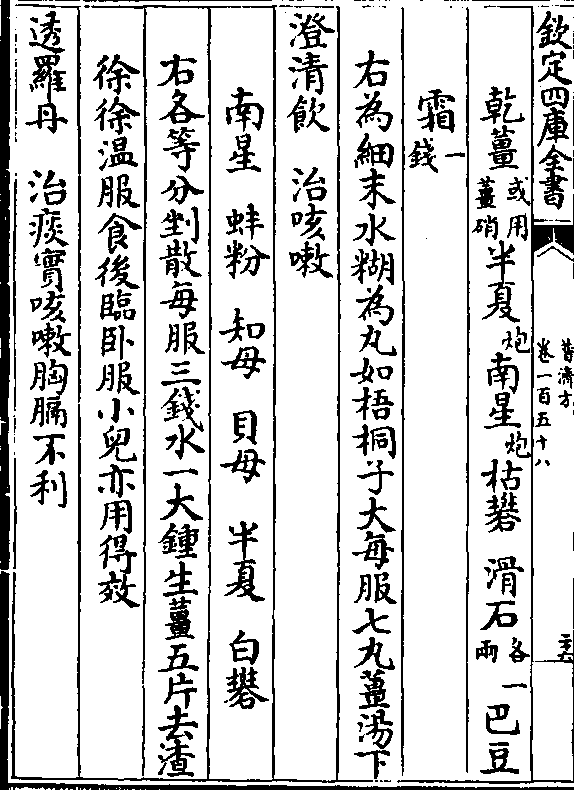 欽定四庫全書
普濟方
卷一百五十八
乾薑或用薑硝半夏炮南星炮枯礬 滑石各一兩巴豆
霜一錢
右為細末水糊為丸如梧桐子大每服七丸薑湯下
澄清飲 治咳嗽
南星 蚌粉 知母 貝母 半夏 白礬
右各等分剉散每服三錢水一大鍾生薑五片去渣
徐徐温服食後臨卧服小兒亦用得效
透羅丹 治痰實咳嗽胸膈不利